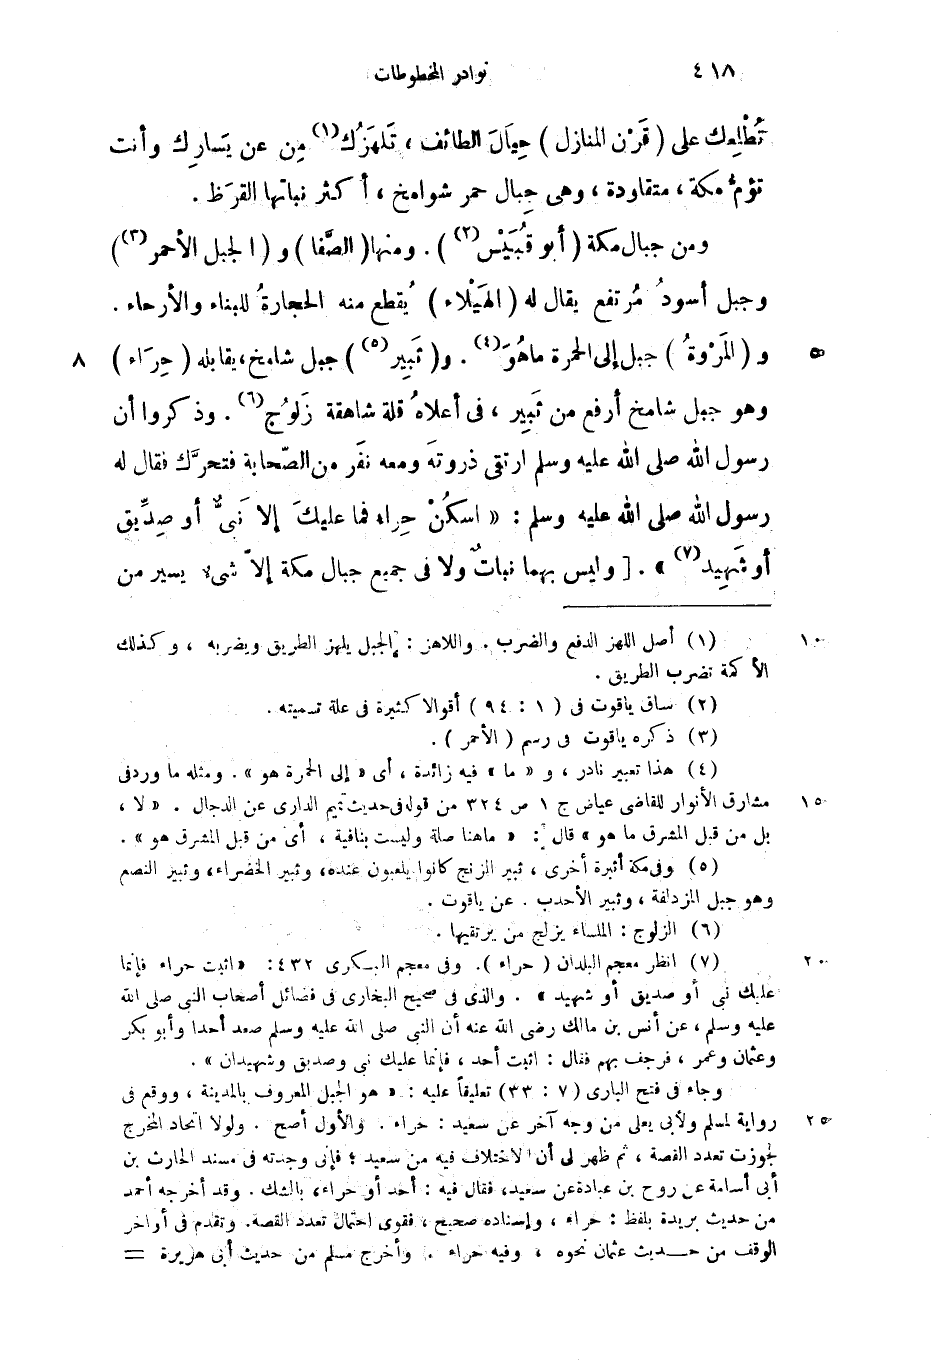 ٤١٨ نوادر المخطوطات
تُطْلِعك على ( قَرْن المنازل ) حِيَالَ الطائف ، تَلهَزُك(١) مِن عن يَسارِك وأنت
تؤمُّ مكة ، متقاودة ، وهى جبال حمر شوامخ ، أكثر نباتها القرَظ .
ومن جبال مكة ( أبو قُبَيْس(٢) ) . ومنها ( الصَّفا ) و ( الجبل الأحمر(٣) )
وجبل أسودُ مُرتفع يقال له ( الهَيْلاء ) يُقطع منه الحجارةُ للبناء والأرحاء .
و ( المَرْوةُ ) جبل إلى الحمرة ماهُوَ(٤) . و ( ثَبِير(٥) ) جبل شامخ ، يقابله ( حِرَاء ) ٥ ٨
وهو جبل شامخ أرفع من ثَبِير ، فى أعلاهُ قلة شاهقة زَلُوج(٦) . وذكروا أن
رسول الله صلى الله عليه وسلم ارتقى ذروتَه ومعه نفَر من الصّحابة فتحرَّك فقال له
رسول الله صلى الله عليه وسلم : « اسكُنْ حِراء فما عليكَ إلا نَبىٌّ أو صِدِّيق
أو شَهِيد(٧) » . [ وليس بهما نباتٌ ولا فى جميع جبال مكة إلاّ شىء يسير من
(١) أصل اللهز الدفع والضرب . واللاهز : الجبل يلهز الطريق ويضربه ، وكذلك ١٠
الأكمة تضرب الطريق .
(٢) ساق ياقوت فى ( ١ : ٩٤ ) أقوالا كثيرة فى علة تسميته .
(٣) ذكره ياقوت فى رسم ( الأحمر ) .
(٤) هذا تعبير نادر ، و « ما » فيه زائدة ، أى « إلى الحمرة هو » . ومثله ما ورد فى
مشارق الأنوار للقاضى عياض ج ١ ص ٣٢٤ من قوله فى حديث تميم الدارى عن الدجال . « لا ، ١٥
بل من قبل المشرق ما هو » قال : « ماهنا صلة وليست بنافية ، أى من قبل المشرق هو » .
(٥) وفى مكة أثبرة أخرى ، ثبير الزنج كانوا يلعبون عنده ، وثبير الخضراء ، وثبير النصع
وهو جبل المزدلفة ، وثبير الأحدب . عن ياقوت .
(٦) الزلوج : الملساء يزلج من يرتقيها .
(٧) انظر معجم البلدان ( حراء ) . وفى معجم البكرى ٤٣٢ : « اثبت حراء فإنما ٢٠
عليك نبى أو صديق أو شهيد » . والذى فى صحيح البخارى فى فضائل أصحاب النبى صلى الله
عليه وسلم ، عن أنس بن مالك رضى الله عنه أن النبى صلى الله عليه وسلم صعد أحدا وأبو بكر
وعثمان وعمر ، فرجف بهم فقال : اثبت أحد ، فإنما عليك نبى وصديق وشهيدان » .
وجاء فى فتح البارى ( ٧ : ٣٣ ) تعليقاً عليه : « هو الجبل المعروف بالمدينة ، ووقع فى
رواية لمسلم ولأبى يعلى من وجه آخر عن سعيد : حراء . والأول أصح . ولولا اتحاد المخرج ٢٥
لجوزت تعدد القصة ، ثم ظهر لى أن الاختلاف فيه من سعيد ؛ فإنى وجدته فى مسند الحارث بن
أبى أسامة عن روح بن عبادة عن سعيد ، فقال فيه : أحد أو حراء ، بالشك . وقد أخرجه أحمد
من حديث بريدة بلفظ : حراء ، وإسناده صحيح ، فقوى احتمال تعدد القصة . وتقدم فى أواخر
الوقف من حديث عثمان نحوه ، وفيه حراء . وأخرج مسلم من حديث أبى هريرة =